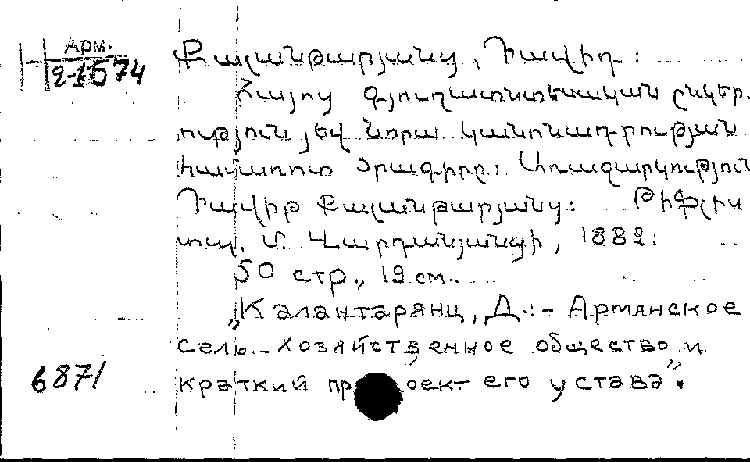 Арм.
2-1574
Քալանթարյանց, Դավիդ:
Հայոց գյուղատնտեսական ընկեր
ություն յեվ նորա կանոնադրության
համառոտ ծրագիրը: Առաջարկություն
Դավիթ Քալանթարյանց: Թիֆլիս
տպ. Մ. Վարդանյանցի, 1882:
50 стр., 19 см.
"Калантарянц, Д.:- Армянское
сель.-хозяйственное общество и
6871 краткий проект его устава".